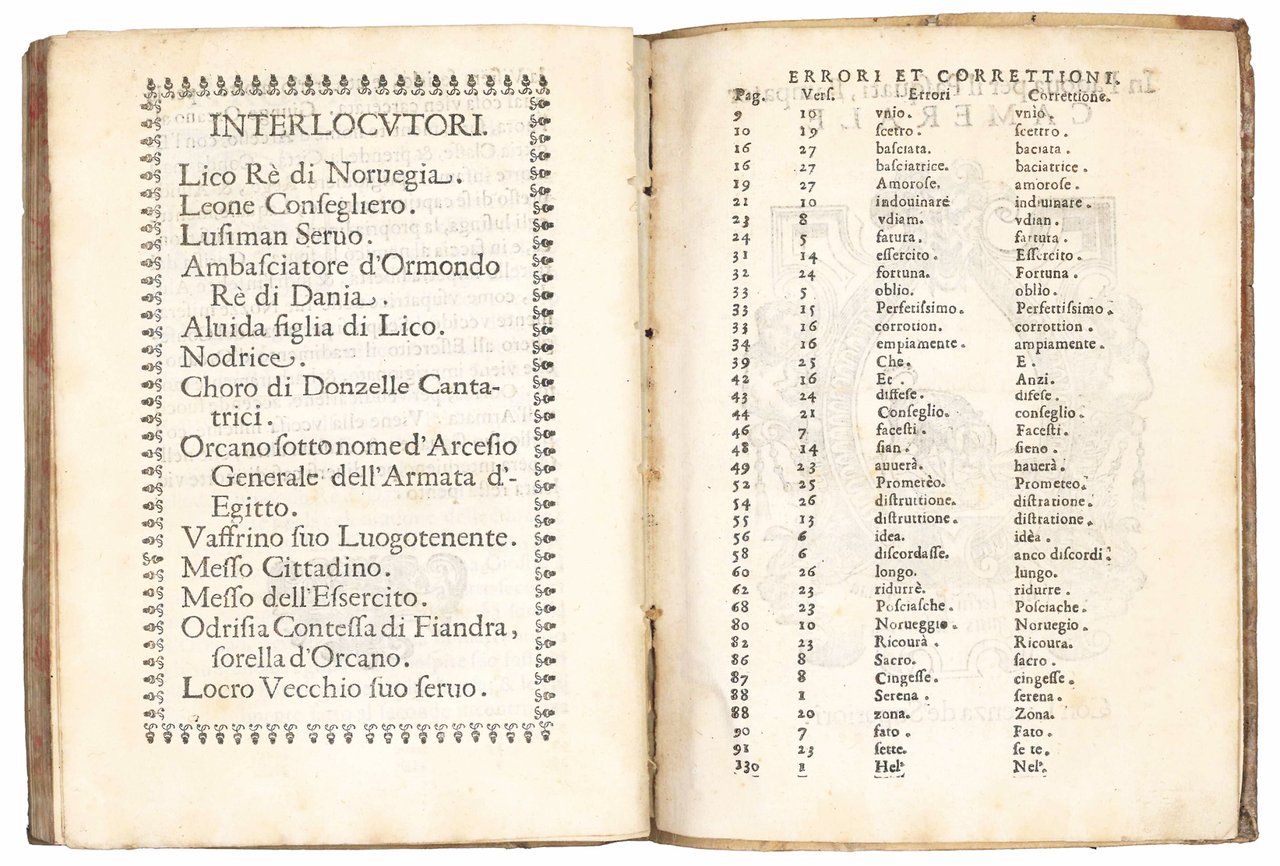 INTERLOCVTORI.
Lico Rè di Noruegia.
Leone Conſegliero.
Luſiman Seruo.
Ambaſciatore d'Ormondo
Rè di Dania.
Aluida figlia di Lico.
Nodrice.
Choro di Donzelle Canta-
trici.
Orcano ſotto nome d'Arceſio
Generale dell'Armata d'-
Egitto.
Vaffrino ſuo Luogotenente.
Meſſo Cittadino.
Meſſo dell'Eſſercito.
Odriſia Conteſſa di Fiandra,
ſorella d'Orcano.
Locro Vecchio ſuo ſeruo.
ERRORI ET CORRETTIONI.
Pag. Verſ. Errori Correttione.
9 10 vnio. vnìo.
10 19 ſcetro. ſcettro.
16 27 baſciata. baciata.
16 27 baſciatrice. baciatrice.
19 27 Amoroſe. amoroſe.
21 10 indouinare induinare.
23 8 vdiam. vdian.
24 5 fatura. fattura.
31 14 eſſercito. Eſſercito.
32 24 fortuna. Fortuna.
33 5 oblio. oblìo.
33 15 Perfetiſſimo. Perfettiſſimo.
33 16 corrotion. corrottion.
34 16 empiamente. ampiamente.
39 25 Che. E.
42 16 Et. Anzi.
43 24 diffeſe. difeſe.
44 21 Conſeglio. conſeglio.
46 7 faceſti. Faceſti.
48 14 ſian. ſieno.
49 23 auuerà. hauerà.
52 25 Prometèo. Prometeo.
54 26 diſtruttione. diſtratione.
55 13 diſtruttione. diſtratione.
56 6 idea. idèa.
58 6 diſcordaſſe. anco diſcordi.
60 26 longo. lungo.
62 23 ridurrè. ridurre.
68 23 Poſciaſche. Poſciache.
80 10 Norueggio. Noruegio.
82 23 Ricourà. Ricoura.
86 8 Sacro. ſacro.
87 8 Cingeſſe. cingeſſe.
88 1 Serena. ſerena.
88 20 zona. Zona.
90 7 fato. Fato.
91 23 ſette. ſe te.
130 1 Hel' Nel'